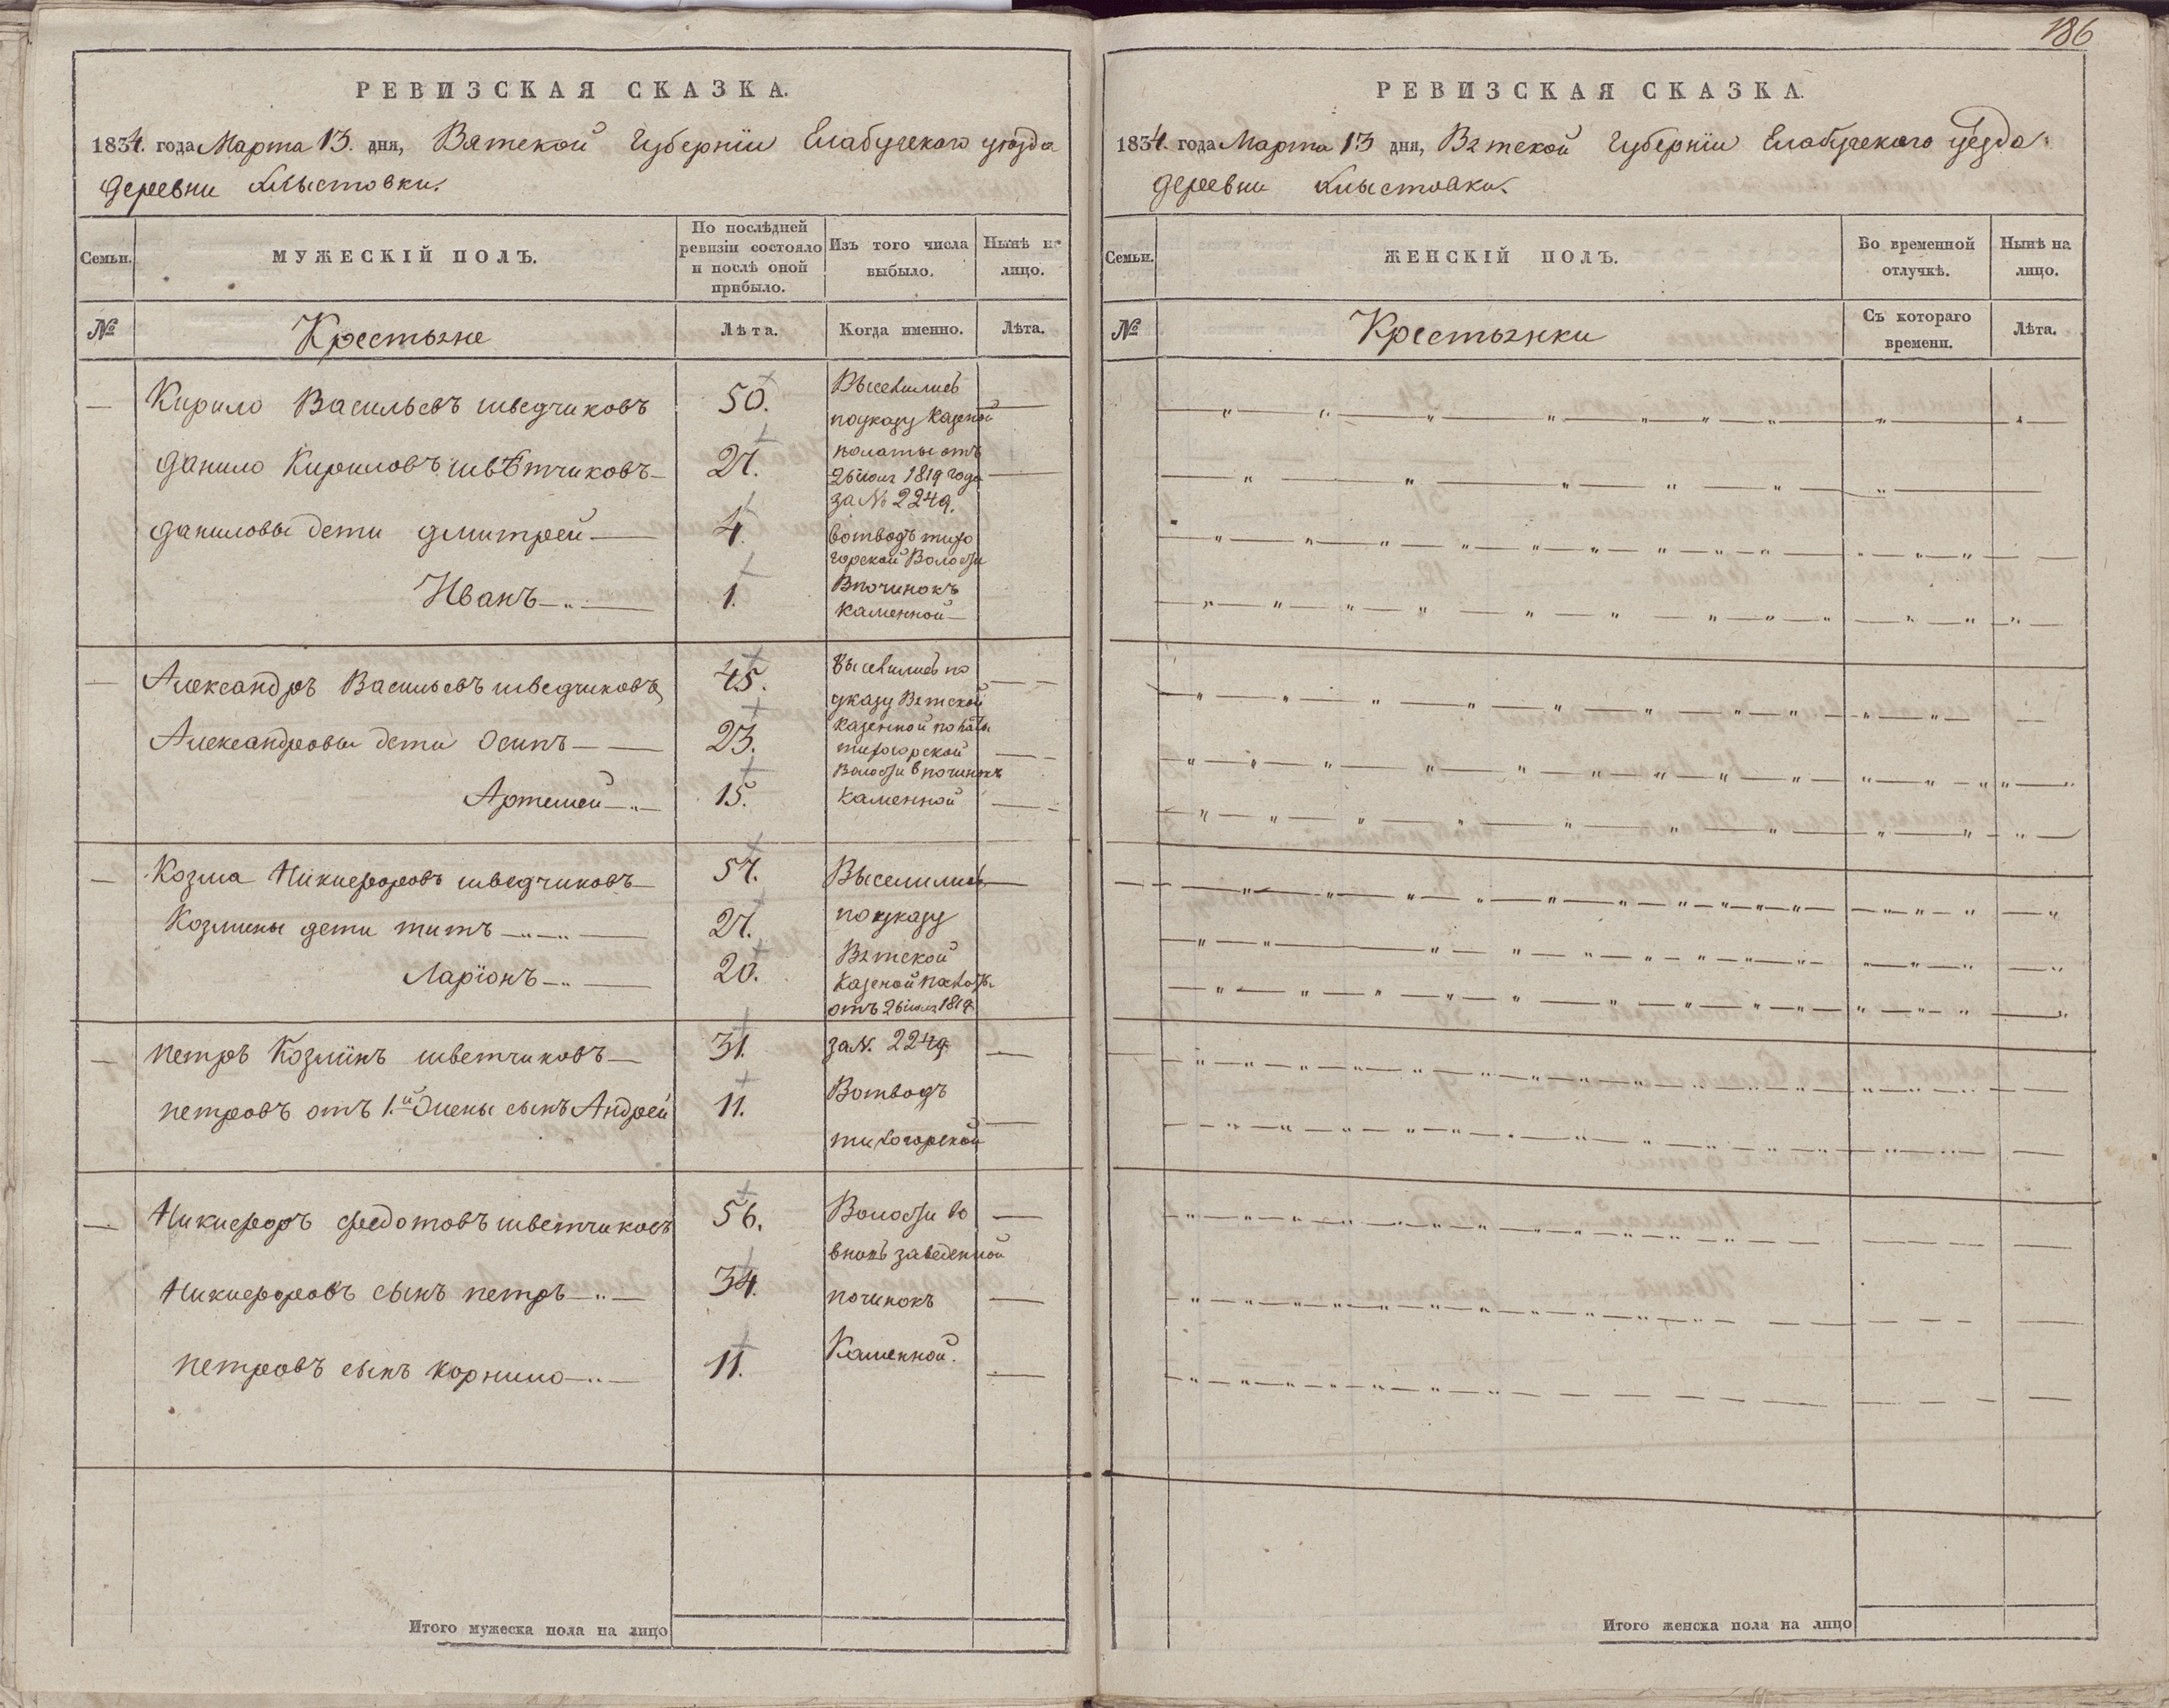 РЕВИЗСКАЯ СКАЗКА.
1834. года Марта 13. дня, Вятской Губернїи Елабугского уѣзда
деревни
Семьи.
МУЖЕСКІЙ ПОЛЪ.
По послѣдней
ревизіи состояло
и послѣ оной
прибыло.
Изъ того числа
выбыло.
Нынѣ на
лицо.
№
Крестьяне
Лѣта.
Когда именно.
Лѣта.
Кирило Васильевъ шведчиковъ
50.
Выселились
поуказу казеной
Данило Кириловъ швѣтчиковъ
27.
полаты отъ
26 июля 1819 года
за № 2249.
Даниловы дети Дмитрей
4.
вотводъ тихо
горской Волости
Иванъ
1.
Впочинокъ
каменной
Александръ Васильевъ шведчиковъ
45.
выселились по
указу Вятской
Александровы дети Осипъ
23.
казенной полаты
тихогорской
Волости впочинокъ
Артемей
15.
каменной
Козма Никифоровъ шведчиковъ
57.
Выселились
Козмины дети титъ
27.
поуказу
Вятской
Ларїонъ
20.
казеной полаты
отъ 26 июля 1819
петръ Козминъ шветчиковъ
31.
за N. 2249
петровъ отъ 1.й Жены сынъ Андрей
11.
Вотводъ
тихогорской
Никифоръ федотовъ шветчиковъ
56.
Волости во
вновь заведенной
Никифоровъ сынъ петръ
34.
починокъ
петровъ сынъ корнило
11.
Каменной.
Итого мужеска пола на лицо
186
РЕВИЗСКАЯ СКАЗКА.
1834. года Марта 13 дня, Вятской Губернїи Елабугского уѣзда
деревни
Семьи.
ЖЕНСКІЙ ПОЛЪ.
Во временной
отлучкѣ.
Нынѣ на
лицо.
№
Крестьянки
Съ котораго
времени.
Лѣта.
Итого женска пола на лицо